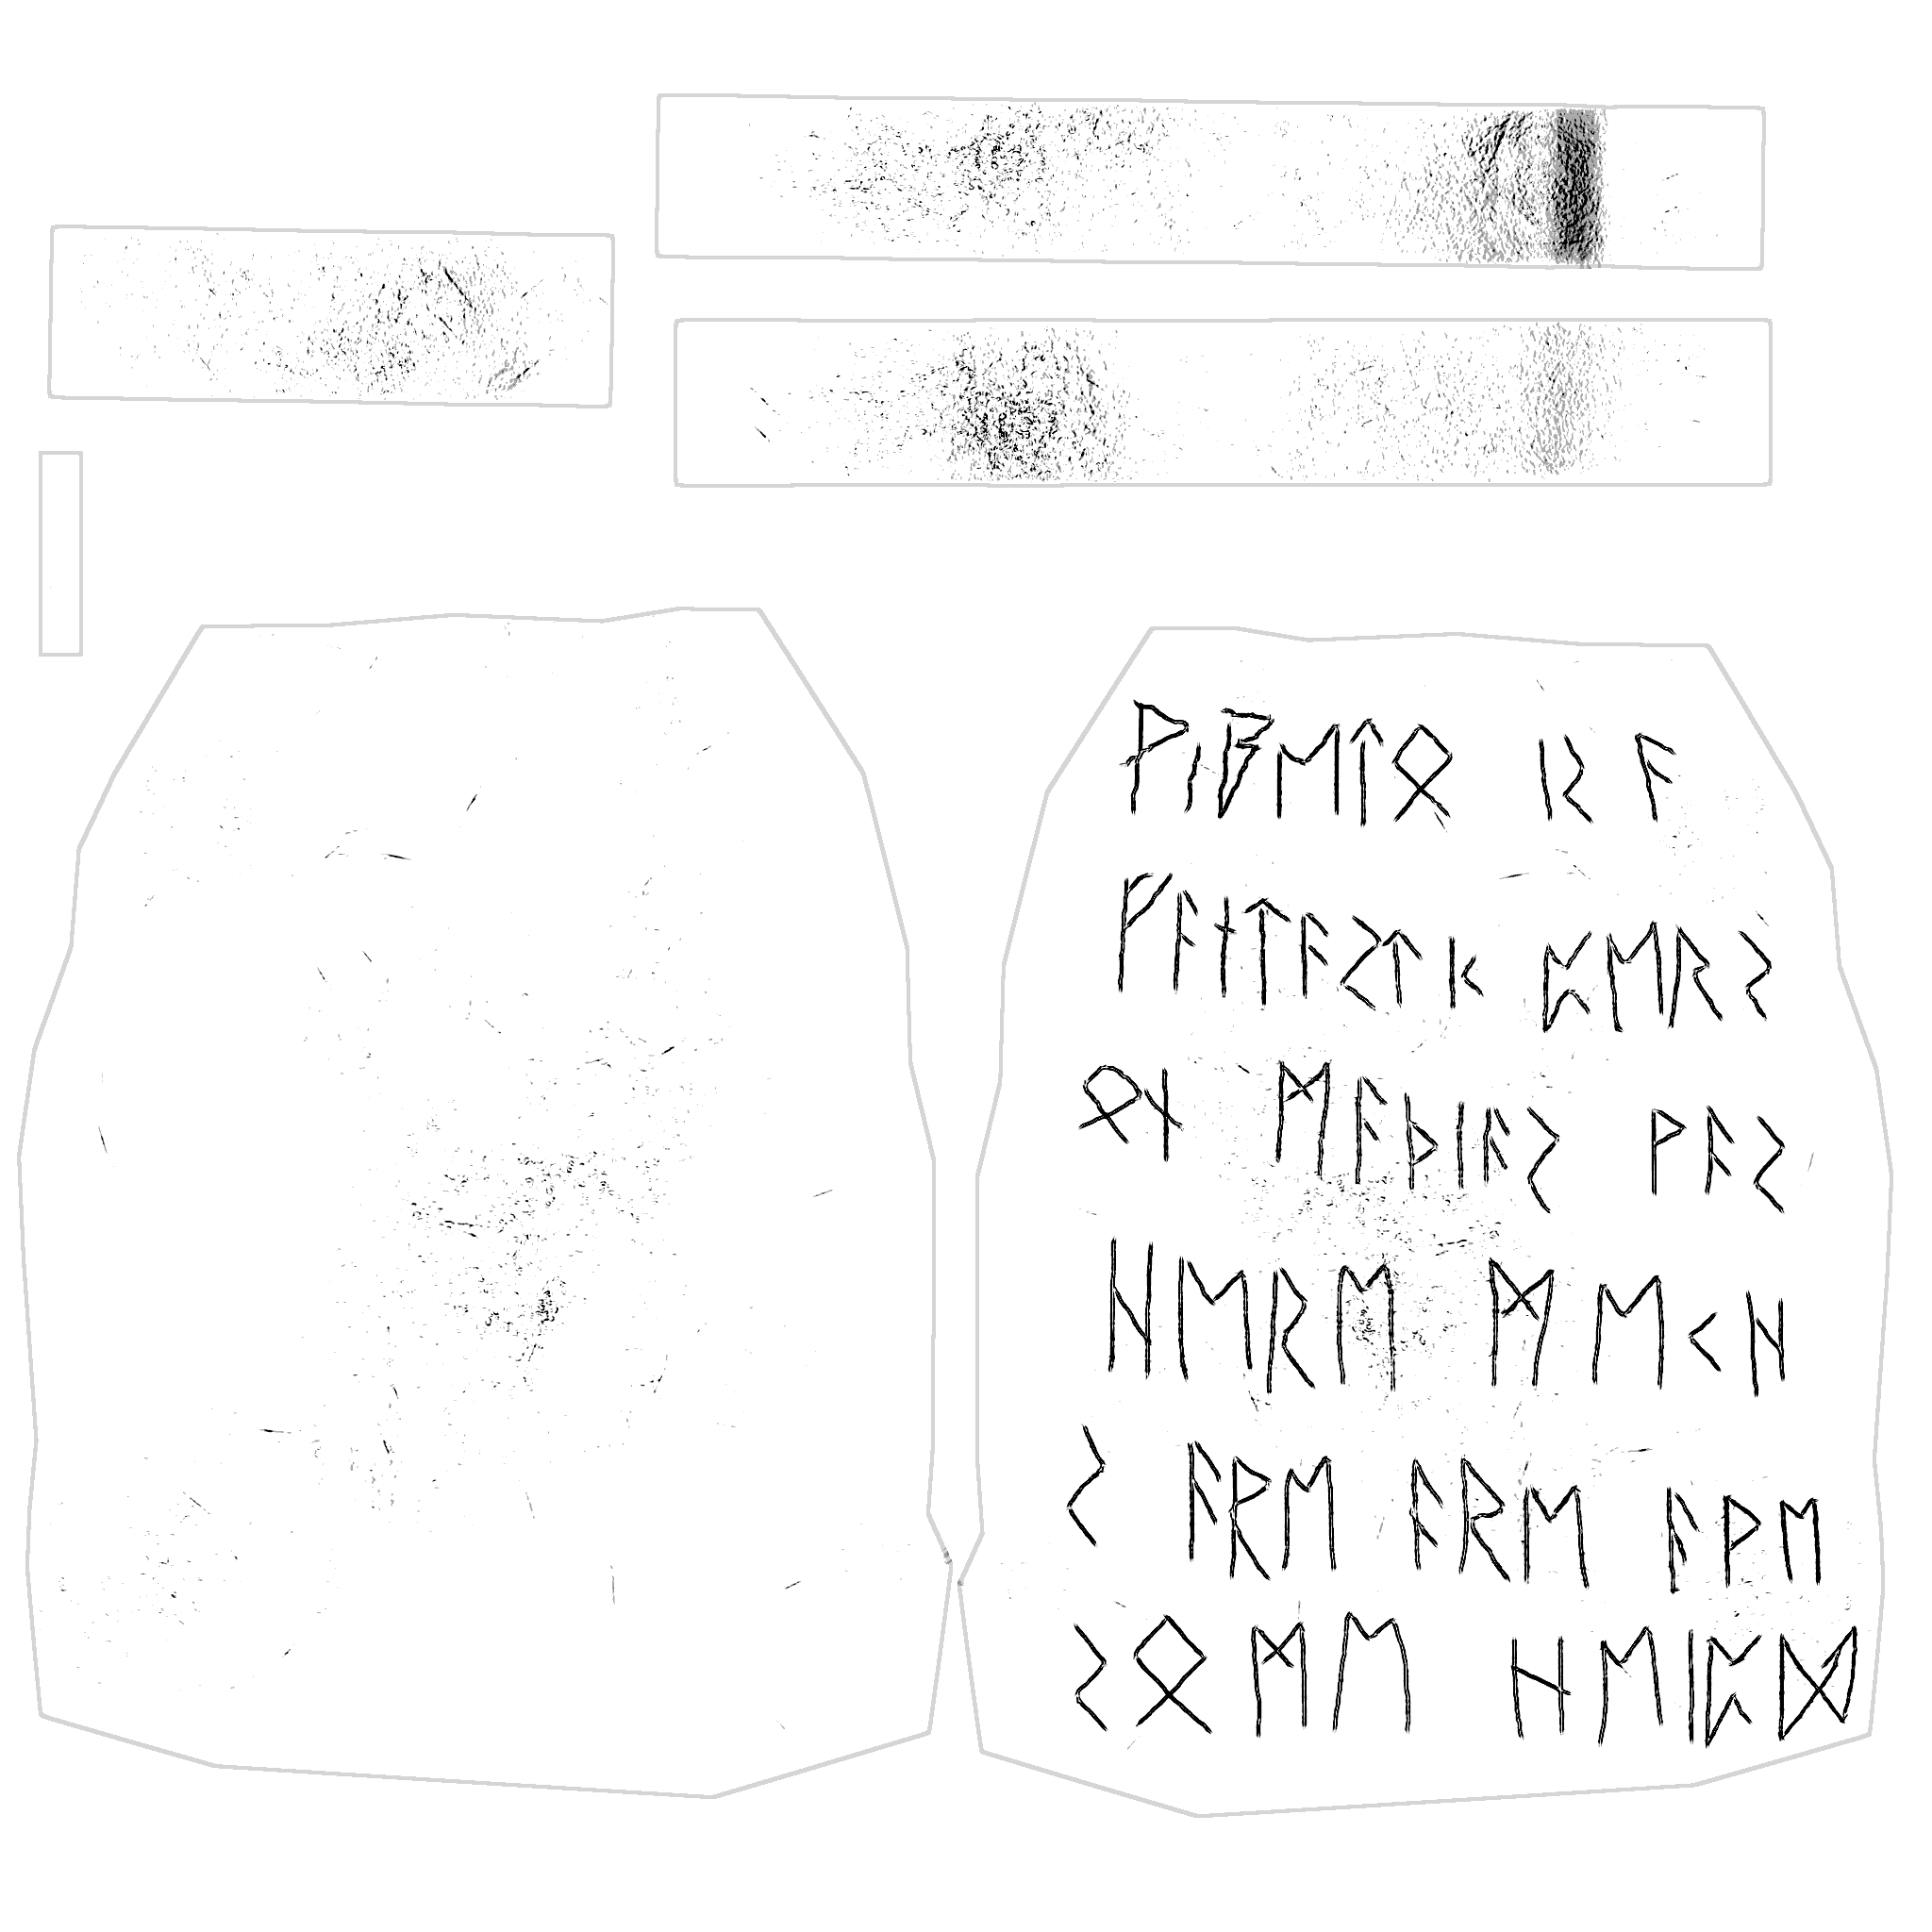 ᚹᛁᛒᛖᛏᛟ ᛁᛊ ᚨ
ᚠᚨᚾᛏᚨᛊᛏᛁᚲ ᛈᛖᚱᛊ
ᛟᚾ ᛗᚨᚦᛁᚨᛊ ᚹᚨᛊ
ᚺᛖᚱᛖ ᛗᛖᚲᚺ
ᛊ ᚨᚱᛖ ᚨᚱᛖ ᚨᚹᛖ
ᛊᛟᛗᛖ ᚺᛖᛁᛈᛞ